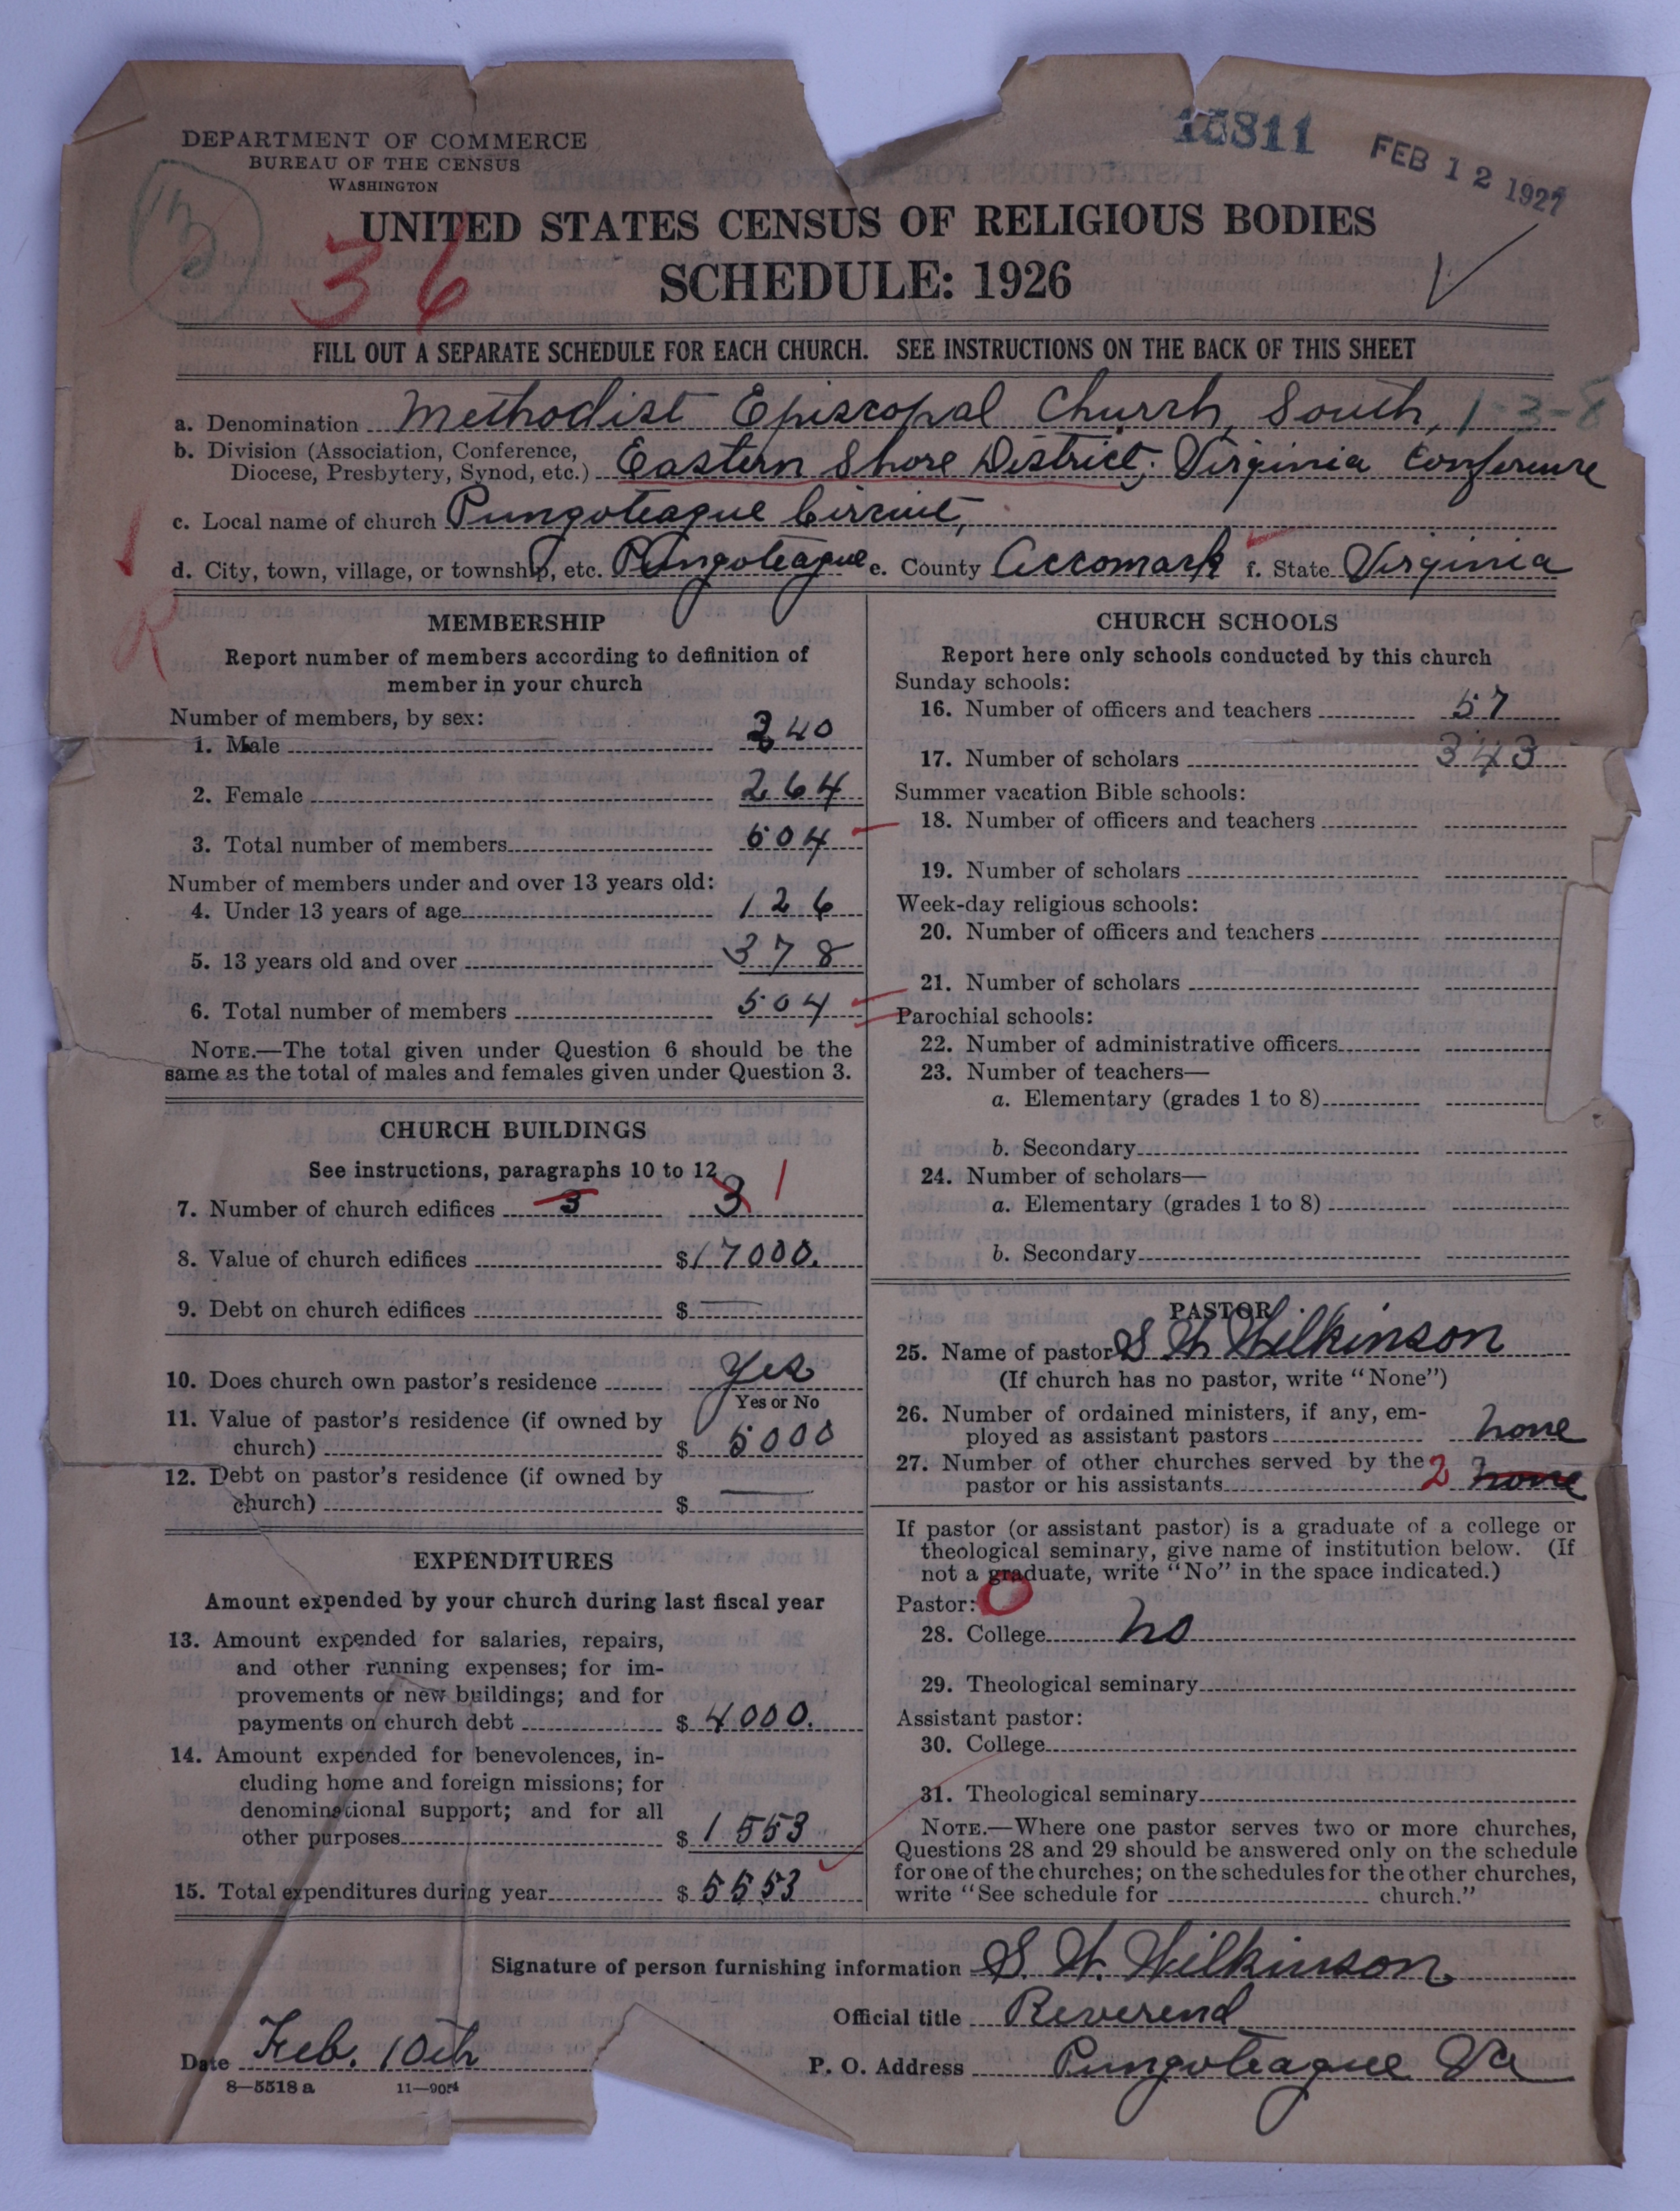 15811
FEB 12 1927
DEPARTMENT OF COMMERCE
BUREAU OF THE CENSUS
WASHINGTON
UNITED STATES CENSUS OF RELIGIOUS BODIES
36
SCHEDULE: 1926
FILL OUT A SEPARATE SCHEDULE FOR EACH CHURCH. SEE INSTRUCTIONS ON THE BACK OF THIS SHEET
a. Denomination Methodist Episcopal Church, South, 1-3-8
b. Division (Association, Conference,
Diocese, Presbytery, Synod, etc.) Eastern Shore District; Virginia Conference
c. Local name of church Pungoteague Circuit,
d. City, town, village, or township, etc. Pungoteague e. County Accomack f. State Virginia
MEMBERSHIP
Report number of members according to definition of
member in your church
Number of members, by sex:
1. Male 240
2. Female 264
3. Total number of members 504
Number of members under and over 13 years old:
4. Under 13 years of age 126
5. 13 years old and over 378
6. Total number of members 504
NOTE.—The total given under Question 6 should be the
same as the total of males and females given under Question 3.
CHURCH BUILDINGS
See instructions, paragraphs 10 to 12
7. Number of church edifices 3 3 1
8. Value of church edifices $17000.
9. Debt on church edifices $ —
10. Does church own pastor's residence Yes
Yes or No
11. Value of pastor's residence (if owned by
church) $ 5000
12. Debt on pastor's residence (if owned by
church) $ —
EXPENDITURES
Amount expended by your church during last fiscal year
13. Amount expended for salaries, repairs,
and other running expenses; for im-
provements or new buildings; and for
payments on church debt $ 4000.
14. Amount expended for benevolences, in-
cluding home and foreign missions; for
denominational support; and for all
other purposes $ 1553
15. Total expenditures during year $ 5553
CHURCH SCHOOLS
Report here only schools conducted by this church
Sunday schools:
16. Number of officers and teachers 57
17. Number of scholars 343
Summer vacation Bible schools:
18. Number of officers and teachers
19. Number of scholars
Week-day religious schools:
20. Number of officers and teachers
21. Number of scholars
Parochial schools:
22. Number of administrative officers
23. Number of teachers—
a. Elementary (grades 1 to 8)
b. Secondary
24. Number of scholars—
a. Elementary (grades 1 to 8)
b. Secondary
PASTOR
25. Name of pastor S. W. Wilkinson
(If church has no pastor, write "None")
26. Number of ordained ministers, if any, em-
ployed as assistant pastors none
27. Number of other churches served by the
pastor or his assistants 2 none
If pastor (or assistant pastor) is a graduate of a college or
theological seminary, give name of institution below. (If
not a graduate, write "No" in the space indicated.)
Pastor: 0
28. College no
29. Theological seminary
Assistant pastor:
30. College
31. Theological seminary
NOTE.—Where one pastor serves two or more churches,
Questions 28 and 29 should be answered only on the schedule
for one of the churches; on the schedules for the other churches,
write "See schedule for church."
Signature of person furnishing information S. W. Wilkinson
Official title Reverend
Date Feb. 10th
P. O. Address Pungoteague Va
8—5518 a 11—9054